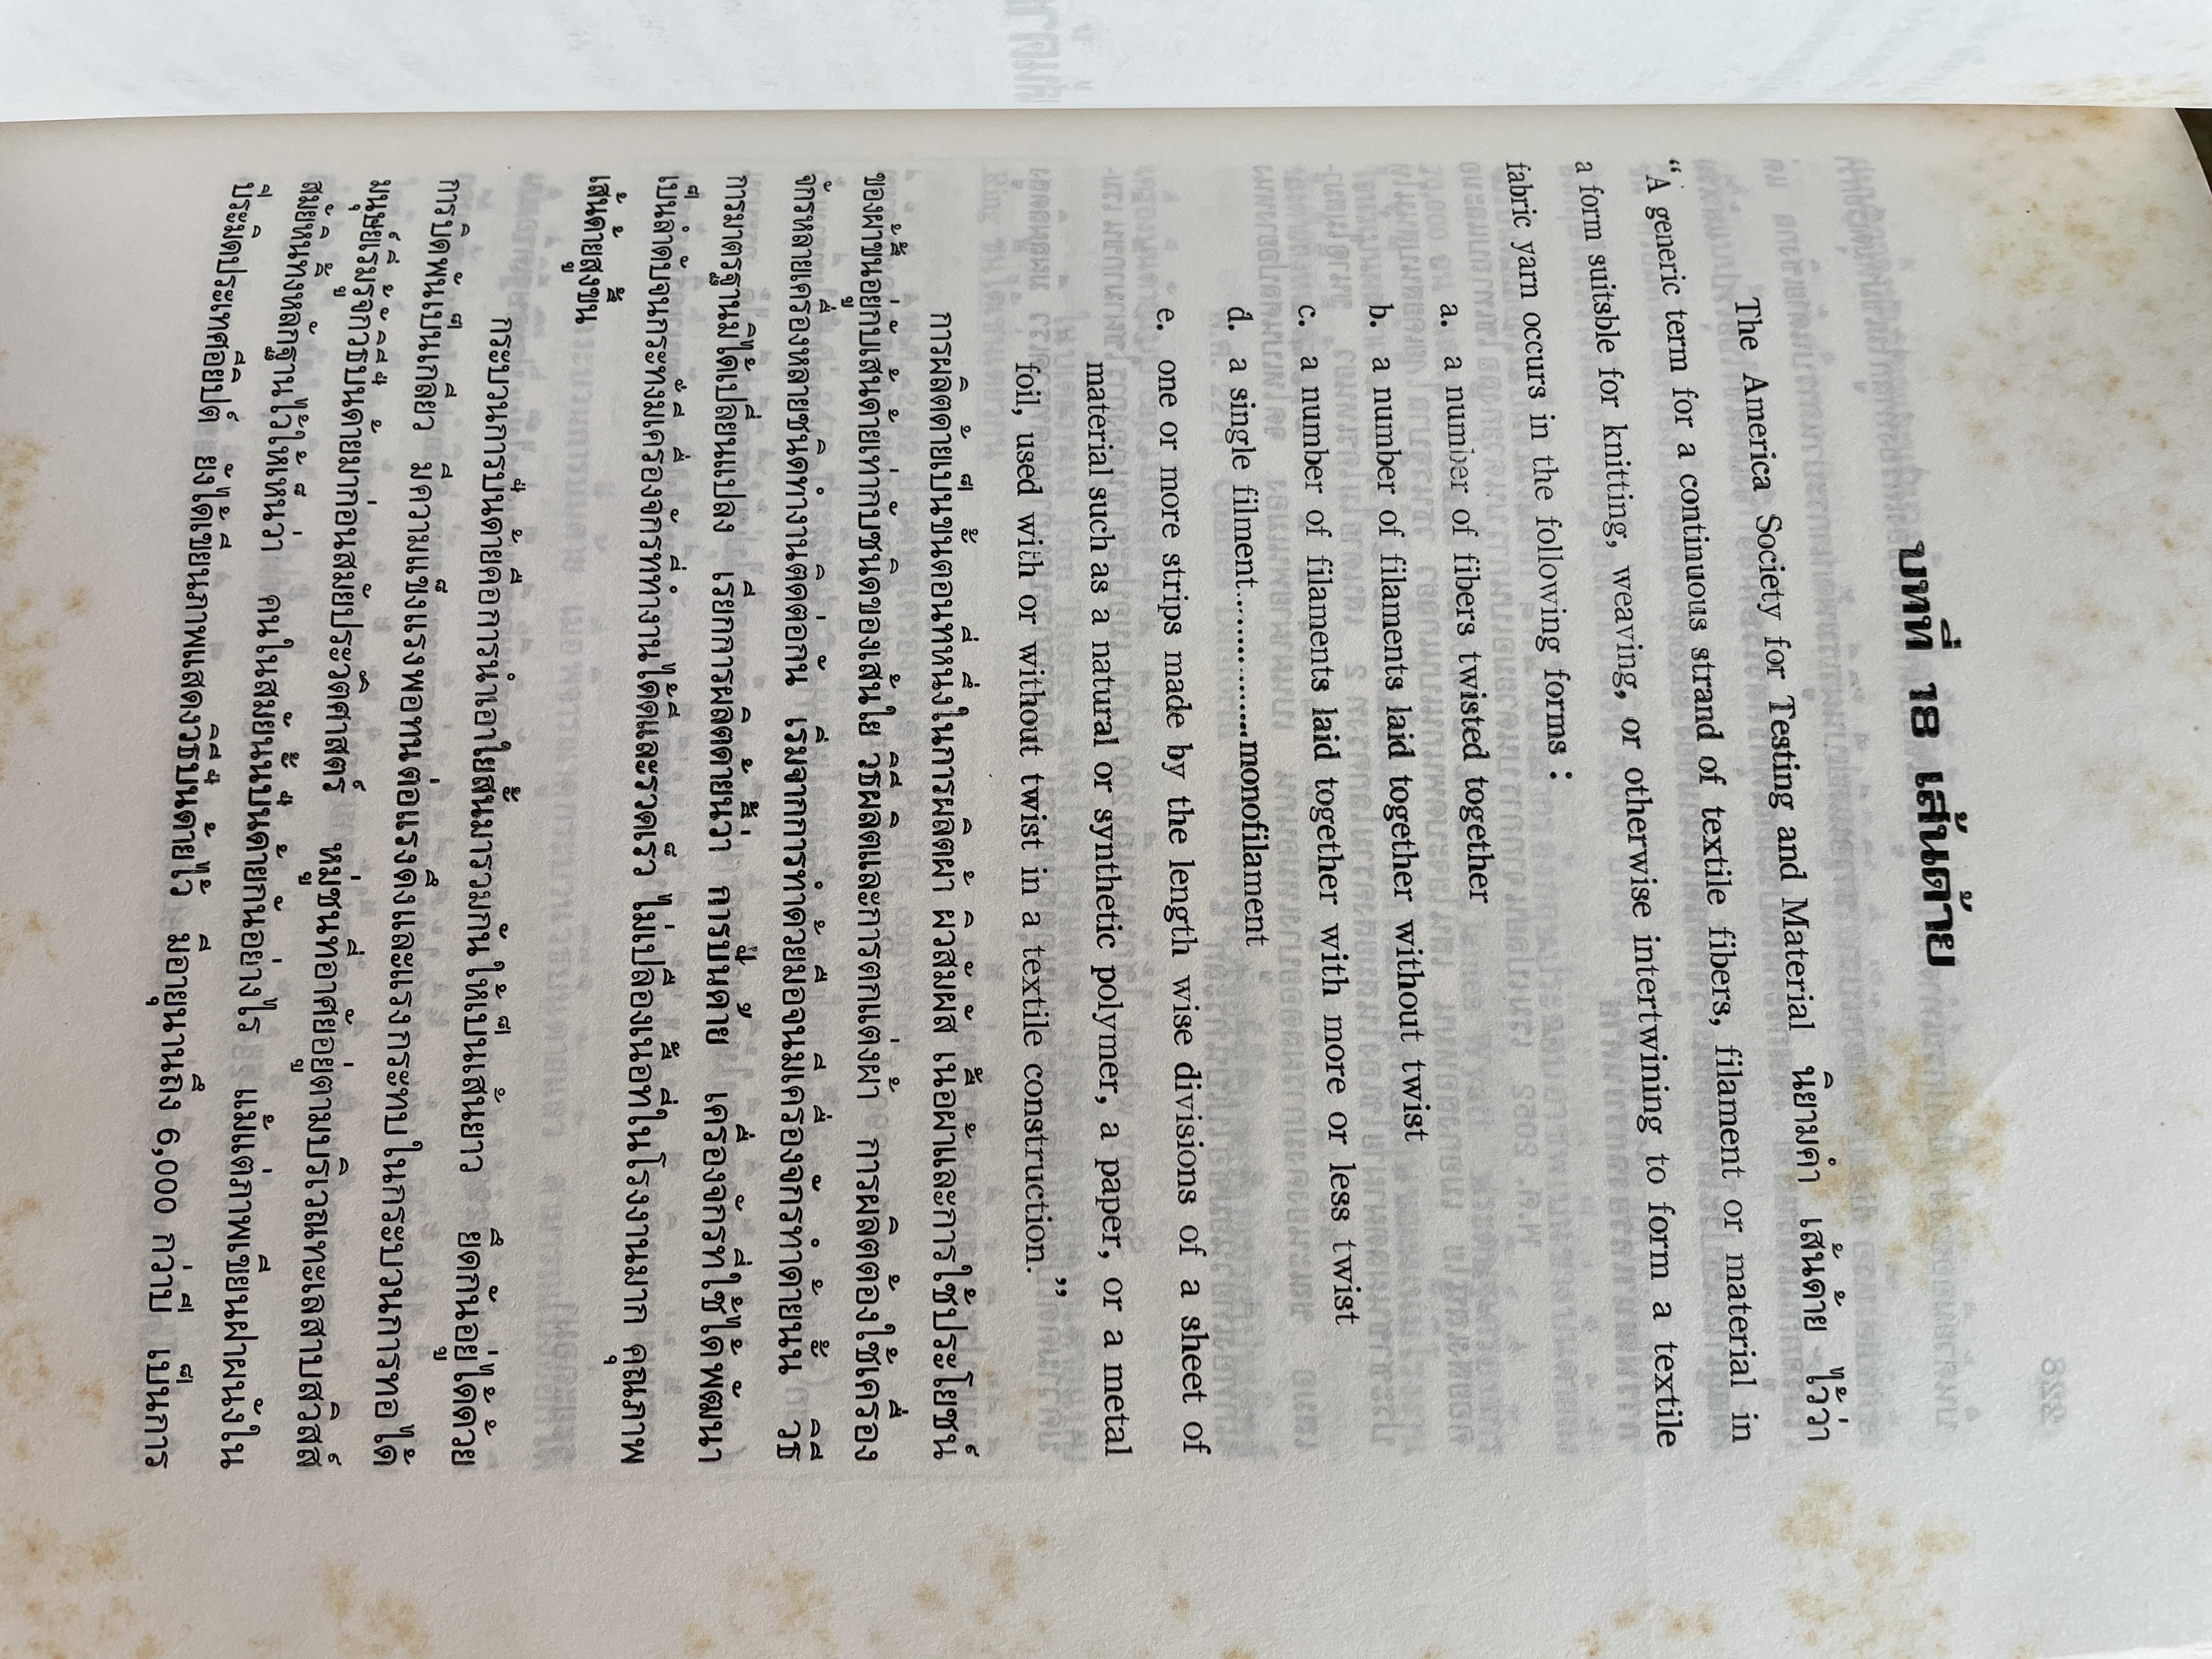 บทที่ ๑๘ เส้นด้าย
The America Society for Testing and Material นิยามคำ เส้นด้าย ไว้ว่า
“A generic term for a continuous strand of textile fibers, filament or material in
a form suitsble for knitting, weaving, or otherwise intertwining to form a textile
fabric yarn occurs in the following forms :
a. a number of fibers twisted together
b. a number of filaments laid together without twist
c. a number of filaments laid together with more or less twist
d. a single filment...............monofilament
e. one or more strips made by the length wise divisions of a sheet of
material such as a natural or synthetic polymer, a paper, or a metal
foil, used with or without twist in a textile construction. ”
การผลิตด้ายเป็นขั้นตอนที่หนึ่งในการผลิตผ้า ผิวสัมผัส เนื้อผ้าและการใช้ประโยชน์
ของผ้าขึ้นอยู่กับเส้นด้ายเท่ากับชนิดของเส้นใย วิธีผลิตและการตกแต่งผ้า การผลิตต้องใช้เครื่อง
จักรหลายเครื่องหลายชนิดทำงานติดต่อกัน เริ่มจากการทำด้วยมือจนมีเครื่องจักรทำด้ายนั้น วิธี
การมาตรฐานมิได้เปลี่ยนแปลง เรียกการผลิตด้ายนี้ว่า การปั่นด้าย เครื่องจักรที่ใช้ได้พัฒนา
เป็นลำดับจนกระทั่งมีเครื่องจักรที่ทำงานได้ดีและรวดเร็ว ไม่เปลืองเนื้อที่ในโรงงานมาก คุณภาพ
เส้นด้ายสูงขึ้น
กระบวนการปั่นด้ายคือการนำเอาใยสั้นมารวมกัน ให้เป็นเส้นยาว ยึดกันอยู่ได้ด้วย
การบิดพันเป็นเกลียว มีความแข็งแรงพอทนต่อแรงดึงและแรงกระทบ ในกระบวนการทอ ได้
มนุษย์เริ่มรู้จักวิธีปั่นด้ายมาก่อนสมัยประวัติศาสตร์ หมู่ชนที่อาศัยอยู่ตามบริเวณทะเลสาบสวิสส์
สมัยหินทิ้งหลักฐานไว้ให้เห็นว่า คนในสมัยนั้นปั่นด้ายกันอย่างไร แม้แต่ภาพเขียนฝาผนังใน
ปีระมิดประเทศอียิปต์ ยังได้เขียนภาพแสดงวิธีปั่นด้ายไว้ มีอายุนานถึง 6,000 กว่าปี เป็นการ